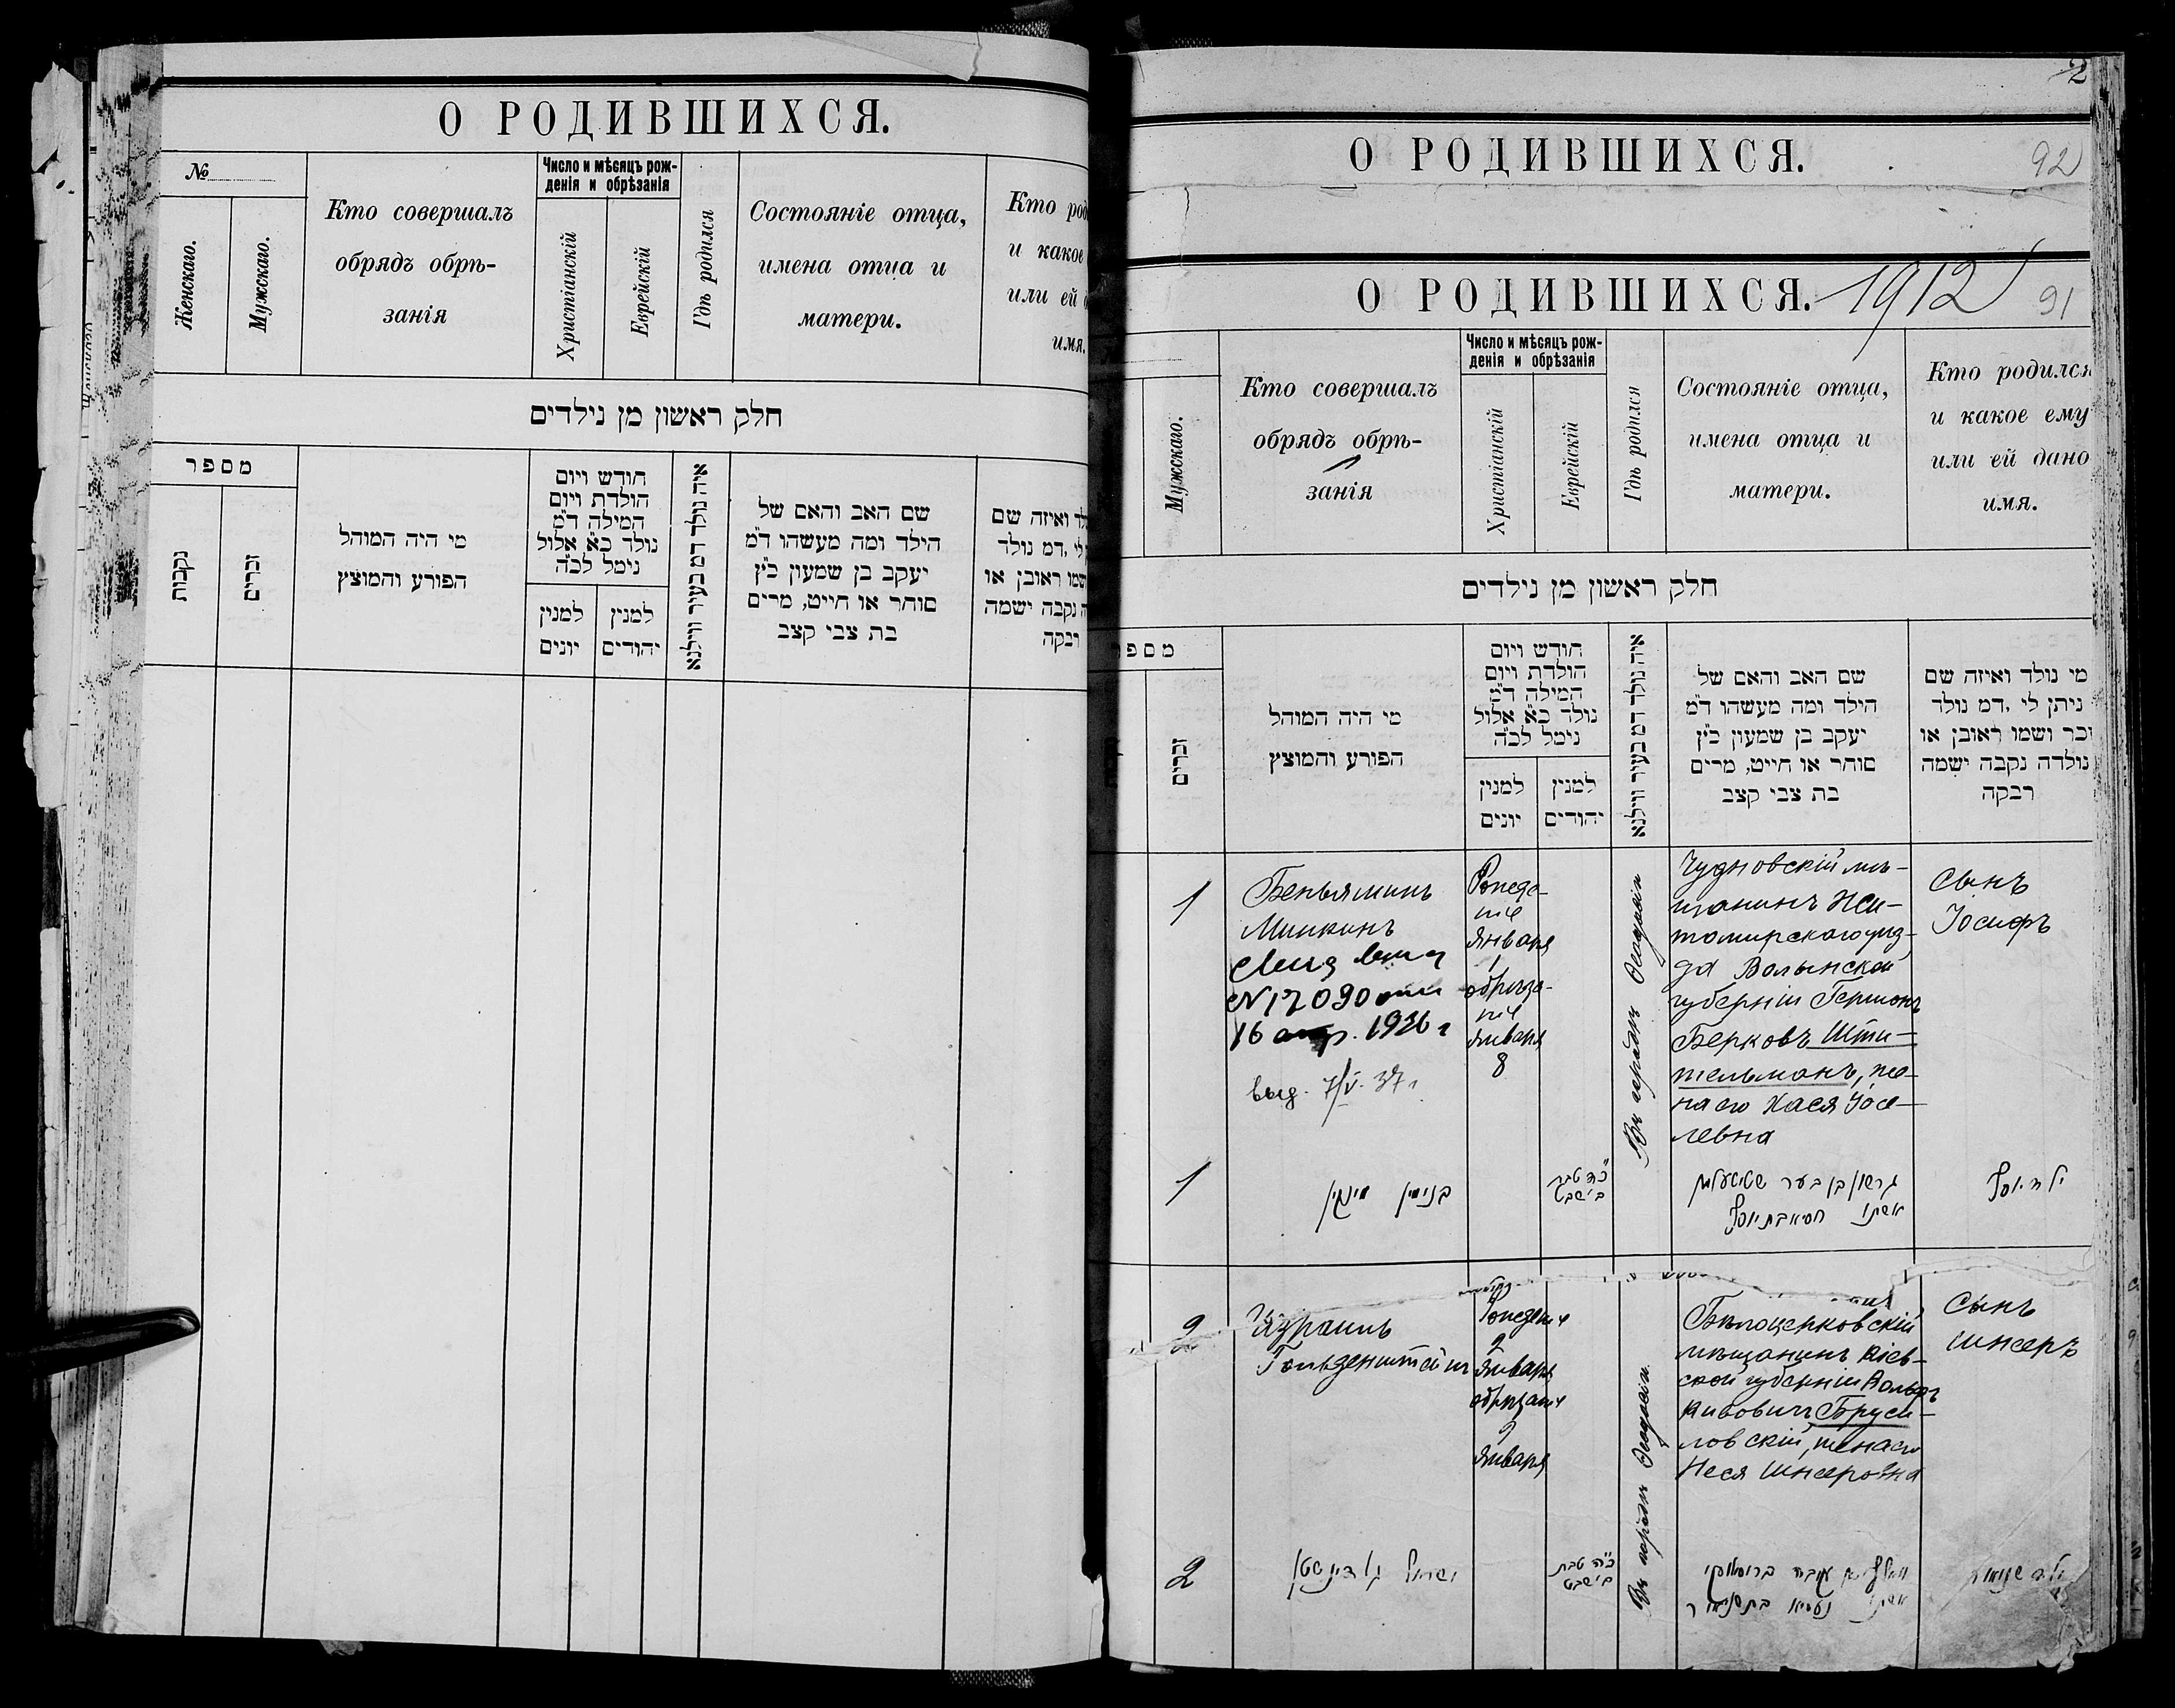 О РОДИВШИХСЯ.
№
Женскаго.
Мужскаго.
Кто совершалъ
обрядъ обрѣ-
занія
Число и мѣсяцъ рож-
денія и обрѣзанія
Христіанскій
Еврейскій
Гдѣ родился
Состояніе отца,
имена отца и
матери.
Кто
и какое
или ей
имя.
חלק ראשון מן נילדים
מספר
נקבות
זכרים
מי היה המוהל
הפורע והמוצץ
חודש ויום
הולדת ויום
המילה ד"מ
נולד כ"א אלול
נימל לכ"ה
למנין
יונים
למנין
יהודים
איה נולד דמ בעיר ווילנא
שם האב והאם של
הילד ומה מעשהו ד"מ
יעקב בן שמעון כ"ץ
סוחר או חייט, מרים
בת צבי קצב
ואיזה שם
דמ נולד
ראובן או
נקבה ישמה
רבקה
2
О РОДИВШИХСЯ.
92
О РОДИВШИХСЯ. 1912
91
Мужскаго.
Кто совершалъ
обрядъ обрѣ-
занія
Число и мѣсяцъ рож-
денія и обрѣзанія
Христіанскій
Еврейскій
Гдѣ родился
Состояніе отца,
имена отца и
матери.
Кто родился
и какое ему
или ей дано
имя.
חלק ראשון מן נילדים
זכרים
מי היה המוהל
הפורע והמוצץ
חודש ויום
הולדת ויום
המילה ד"מ
נולד כ"א אלול
נימל לכ"ה
למנין
יונים
למנין
יהודים
איה נולד דמ בעיר ווילנא
שם האב והאם של
הילד ומה מעשהו ד"מ
יעקב בן שמעון כ"ץ
סוחר או חייט, מרים
בת צבי קצב
מי נולד ואיזה שם
ניתן לי, דמ נולד
זכר ושמו ראובן או
נולדה נקבה ישמה
רבקה
1
Беньяминъ
Минкинъ
N 17090
16 апр. 1936 г
выд. 7/V. 37 г.
Рожде-
ніе
Января
1
обрѣза-
ніе
Января
8
Въ городѣ Ѳеодосіи
Чудновскій мѣ-
щанинъ Жи-
томирскаго уѣз-
да Волынской
губерніи Гершонъ
Берковъ Шти-
тельманъ, же-
на его Хася Іосе-
левна
Сынъ
Іосифъ
1
בנימין מינקין
כ"ה טבת
ב' שבט
גרשון בן בער שטיטעלמן
אשתו חסיא בת יוסף
ילד יוסף
2
Израиль
Гольденштейнъ
Рожденіе
2
Января
обрѣзаніе
9
Января
Въ городѣ Ѳеодосіи
Бѣлоцерковскій
мѣщанинъ Кіев-
ской губерніи Вольфъ
Бруси-
ловскій, жена его
Неся Шнеоровна
Сынъ
Шнееръ
2
ישראל גולדינשטיין
כ"ה טבת
ב' שבט